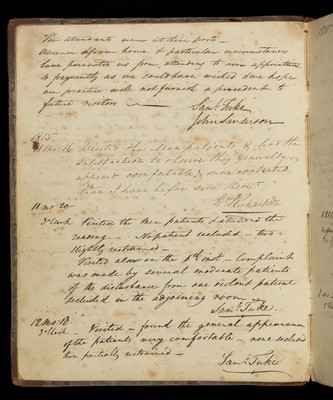 The attendants were at their posts –
Absence from home & particular circumstances
have prevented us from attending to our appointment
so frequently as we could have wished & we hope
our practice will not furnish a precedent to
future visitors –
Saml. Tuke
John Sanderson
1815
11 mo. 16 Visited the Men patients, & had the
satisfaction to observe they generally
appear comfortable, & more contented
than I have before seen them
11 mo. 20 –
3 o'clock Visited the Men patients & attended the
reading – No patient secluded – two
slightly restrained –
Visited also on the 1st inst – Complaint
was made by several moderate patients
of the disturbance from one violent patient
secluded in the adjoining room
Saml. Tuke.
12 mo. 18
3 o'clock – Visited – found the general appearance
of the patients very comfortable – none secluded
two partially restrained –
Saml. Tuke